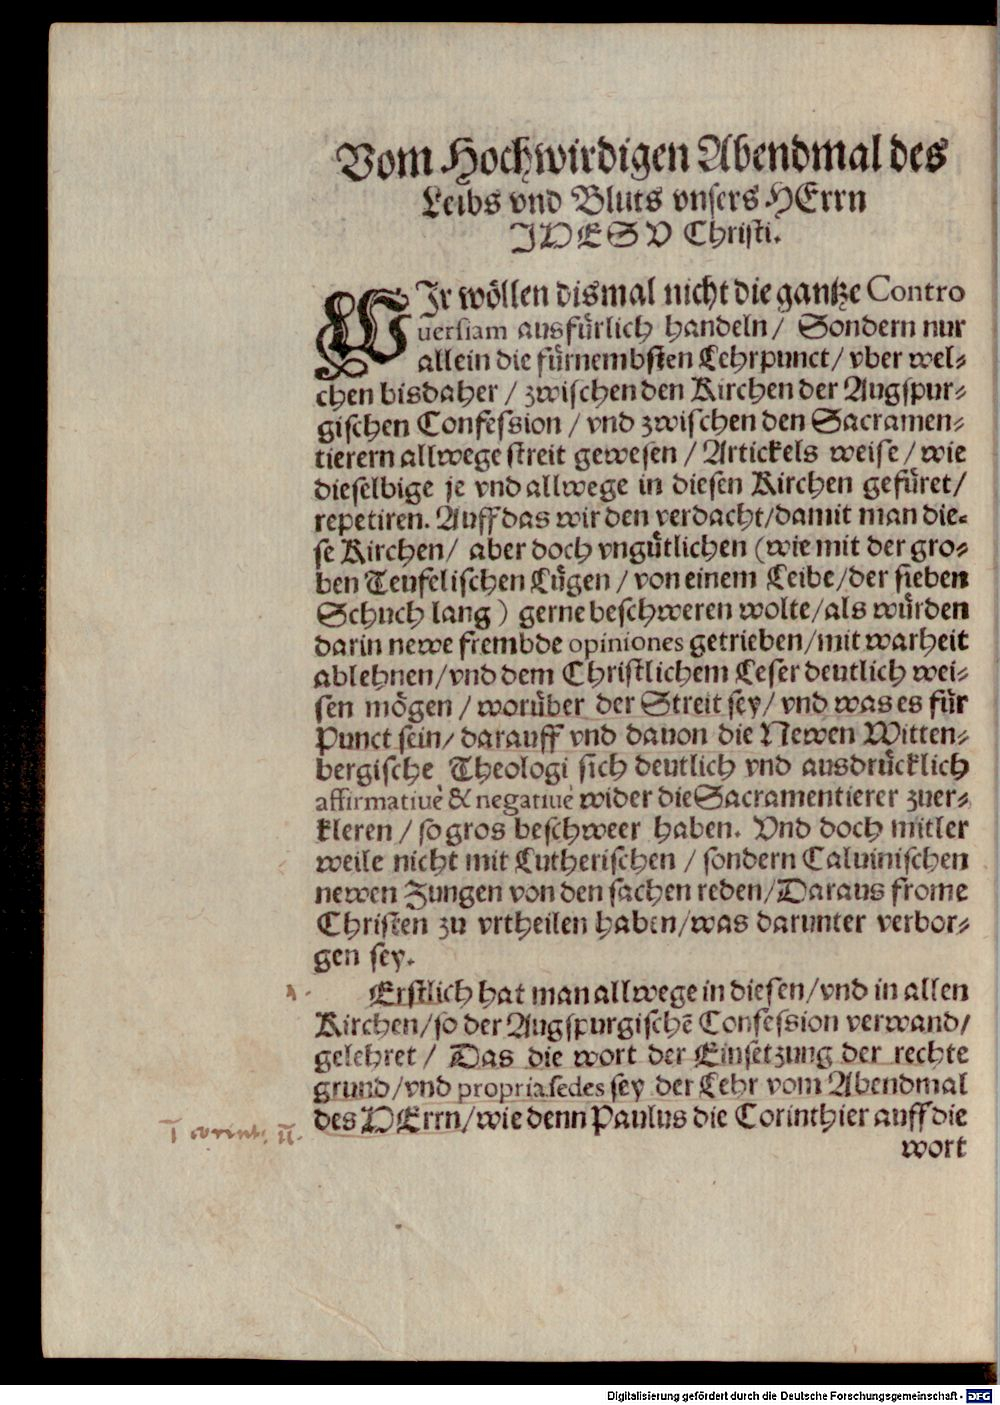 Vom Hochwirdigen Abendmal des
Leibs vnd Bluts vnsers HErrn
JHESV Christi.
WJr wöllen dismal nicht die gantze Contro
uersiam ausfürlich handeln / Sondern nur
allein die fürnembsten Lehrpunct / vber wel-
chen bisdaher / zwischen den Kirchen der Augspur-
gischen Confession / vnd zwischen den Sacramen-
tierern allwege streit gewesen / Artickels weise / wie
dieselbige je vnd allwege in diesen Kirchen gefüret /
repetiren. Auff das wir den verdacht / damit man die-
se Kirchen / aber doch vngütlichen (wie mit der gro-
ben Teufelischen Lügen / von einem Leibe / der sieben
Schuch lang) gerne beschweren wolte / als würden
darin newe frembde opiniones getrieben / mit warheit
ablehnen / vnd dem Christlichem Leser deutlich wei-
sen mögen / worüber der Streit sey / vnd was es für
Punct sein / darauff vnd dauon die Newen Witten-
bergische Theologi sich deutlich vnd ausdrücklich
affirmatiuè & negatiuè wider die Sacramentierer zuer-
kleren / so gros beschweer haben. Vnd doch mitler
weile nicht mit Lutherischen / sondern Caluinischen
newen Zungen von den sachen reden / Daraus frome
Christen zu vrtheilen haben / was darunter verbor-
gen sey.
1. Erstlich hat man allwege in diesen / vnd in allen
Kirchen / so der Augspurgischē Confession verwand /
gelehret / Das die wort der Einsetzung der rechte
grund / vnd propria sedes sey der Lehr vom Abendmal
des HErrn / wie denn Paulus die Corinthier auff die
I corint: II.
wort
Digitalisierung gefördert durch die Deutsche Forschungsgemeinschaft - DFG